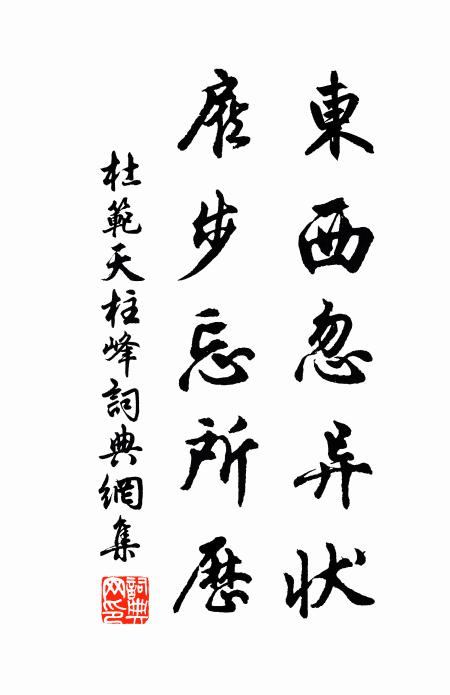 東西忽异状
屣步忘所歷
杜範天柱峰詞典網集
詞典網印